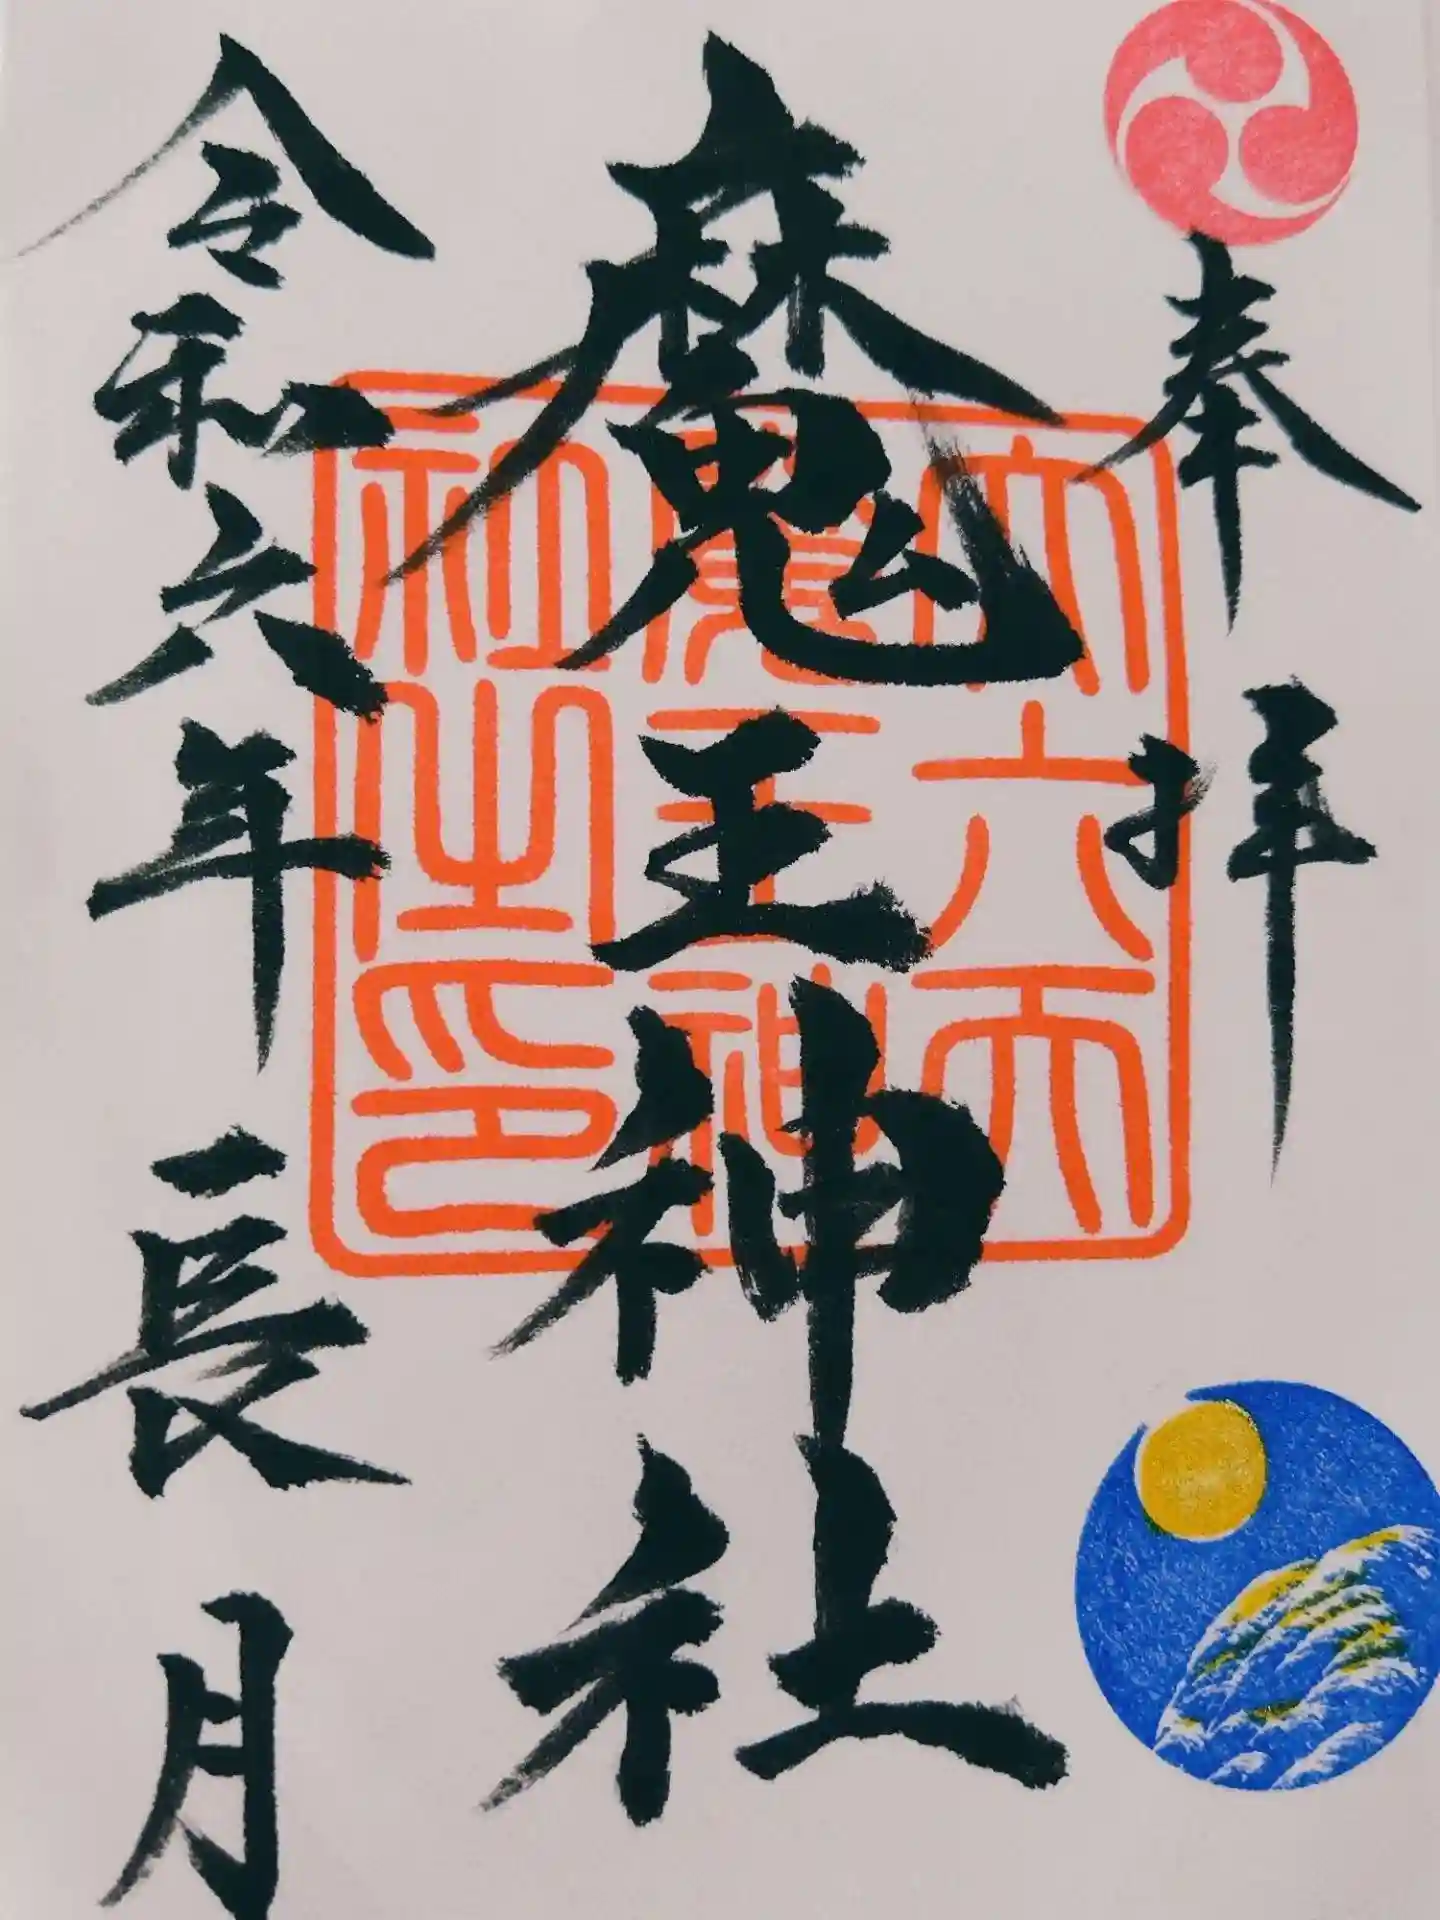 奉拝
魔王神社
令和六年 長月
第六天
魔王神
社之印